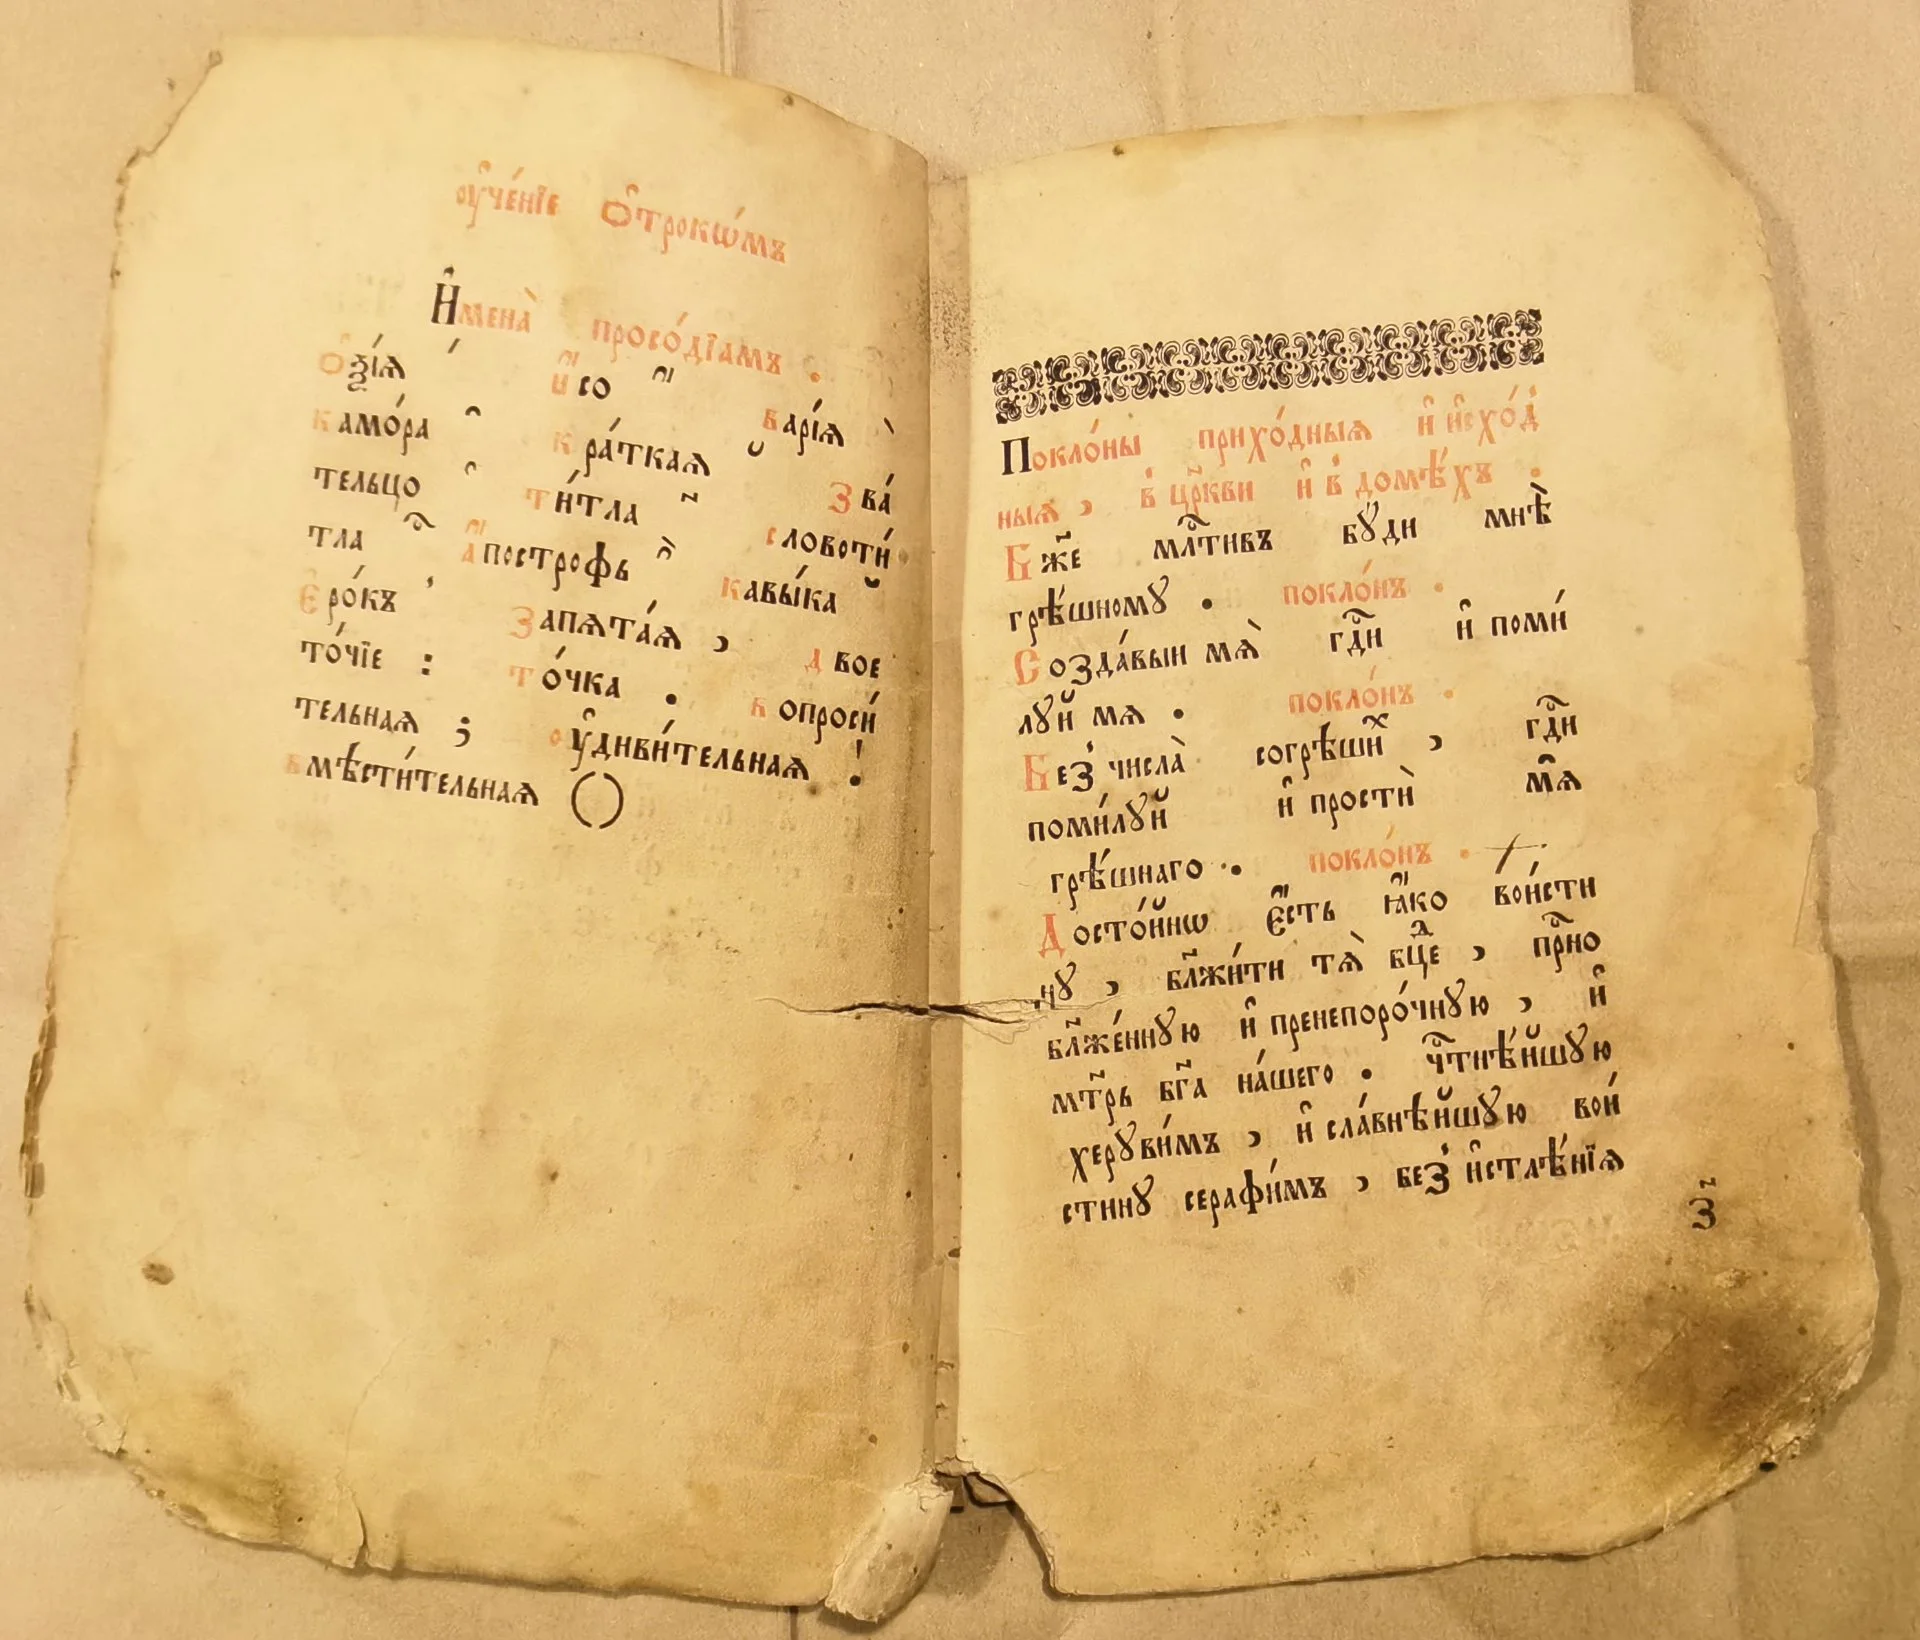 оу҆че́нїе ѻ҆трокѡ́мъ
И҆мена̀ просо́дїамъ .
Ѻ҆ѯі́ѧ ́ и҆́со ҆́ варі́ѧ ̀
камо́ра ̑ кра́ткаѧ ̆ зва́
тельцо ҆ ти́тла ҃ словоти́
тла ⷭ҇ а҆́построфъ ҆̀ кавы́ка ̆
є҆ро́къ ꙳ запѧта́ѧ , двое
то́чїе : то́чка . вопроси́
тельнаѧ ; оу҆диви́тельнаѧ !
вмѣсти́тельнаѧ ()
Покло́ны прихо́дныѧ и҆ и҆схо́д̾
ныѧ , в̾ цр҃кви и҆ в̾ домѣ́хъ .
Бж҃е млⷭ҇тивъ бꙋ́ди мнѣ̀
грѣ́шномꙋ . покло́нъ .
Созда́выи мѧ̀ гдⷭ҇и и҆ поми́
лꙋй мѧ . покло́нъ .
Без̾ числа̀ согрѣши́хъ , гдⷭ҇и
поми́лꙋй и҆ простѝ мѧ̑
грѣ́шнаго . покло́нъ .
Досто́йнѡ є҆́сть ꙗ҆́ко вои́сти
нꙋ , бл҃жи́ти тѧ̀ бцⷣе , прⷭ҇но
бл҃же́ннꙋю и҆ пренепоро́чнꙋю , и҆
мт҃рь бг҃а на́шего . чⷭ҇тнѣ́йшꙋю
херꙋви́мъ , и҆ сла́внѣйшꙋю вои́
стинꙋ серафи́мъ , без̾ и҆стлѣ́нїѧ
з҃